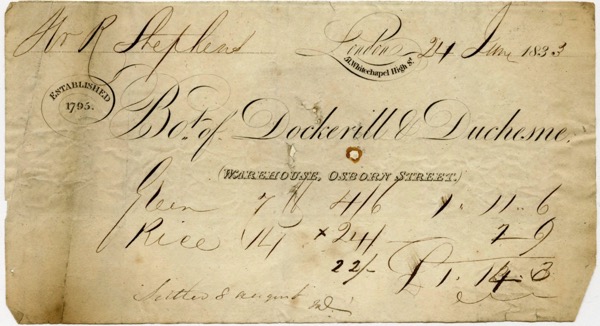 Mr R Stephens London 24 June 1833
Whitechapel High St.
ESTABLISHED
1795.
Bot. of Dockerill & Duchesne.
(WAREHOUSE, OSBORN STREET.)
Green 7 lb 4/6 1. 11. 6
Rice 14 x 24/- 2 9
22/- £1. 14. 3
Settled 8 august